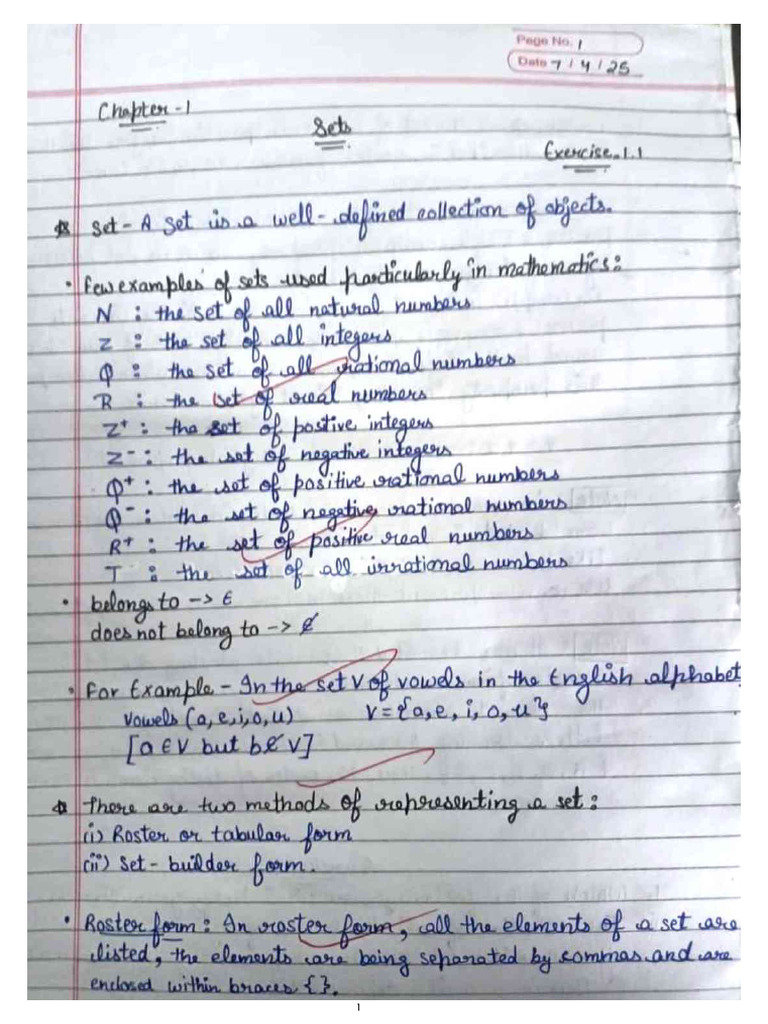 Page No. 1
Date 7/4/25
Chapter-1
Sets
Exercise.1.1
Set - A set is a well-defined collection of objects.
• Few examples of sets used particularly in mathematics:
N : the set of all natural numbers
Z : the set of all integers
Q : the set of all rational numbers
R : the set of real numbers
Z⁺ : the set of postive integers
Z⁻ : the set of negative integers
Q⁺ : the set of positive rational numbers
Q⁻ : the set of negative rational numbers
R⁺ : the set of positive real numbers
T : the set of all irrational numbers
• belongs to -> ∈
does not belong to -> ∉
• For Example - In the set V of vowels in the English alphabet
vowels (a, e, i, o, u) V = {a, e, i, o, u}
[a ∈ V but b ∉ V]
There are two methods of representing a set:
(i) Roster or tabular form
(ii) Set-builder form.
• Roster form: In roster form, all the elements of a set are
listed, the elements are being separated by commas and are
enclosed within braces { }.
1